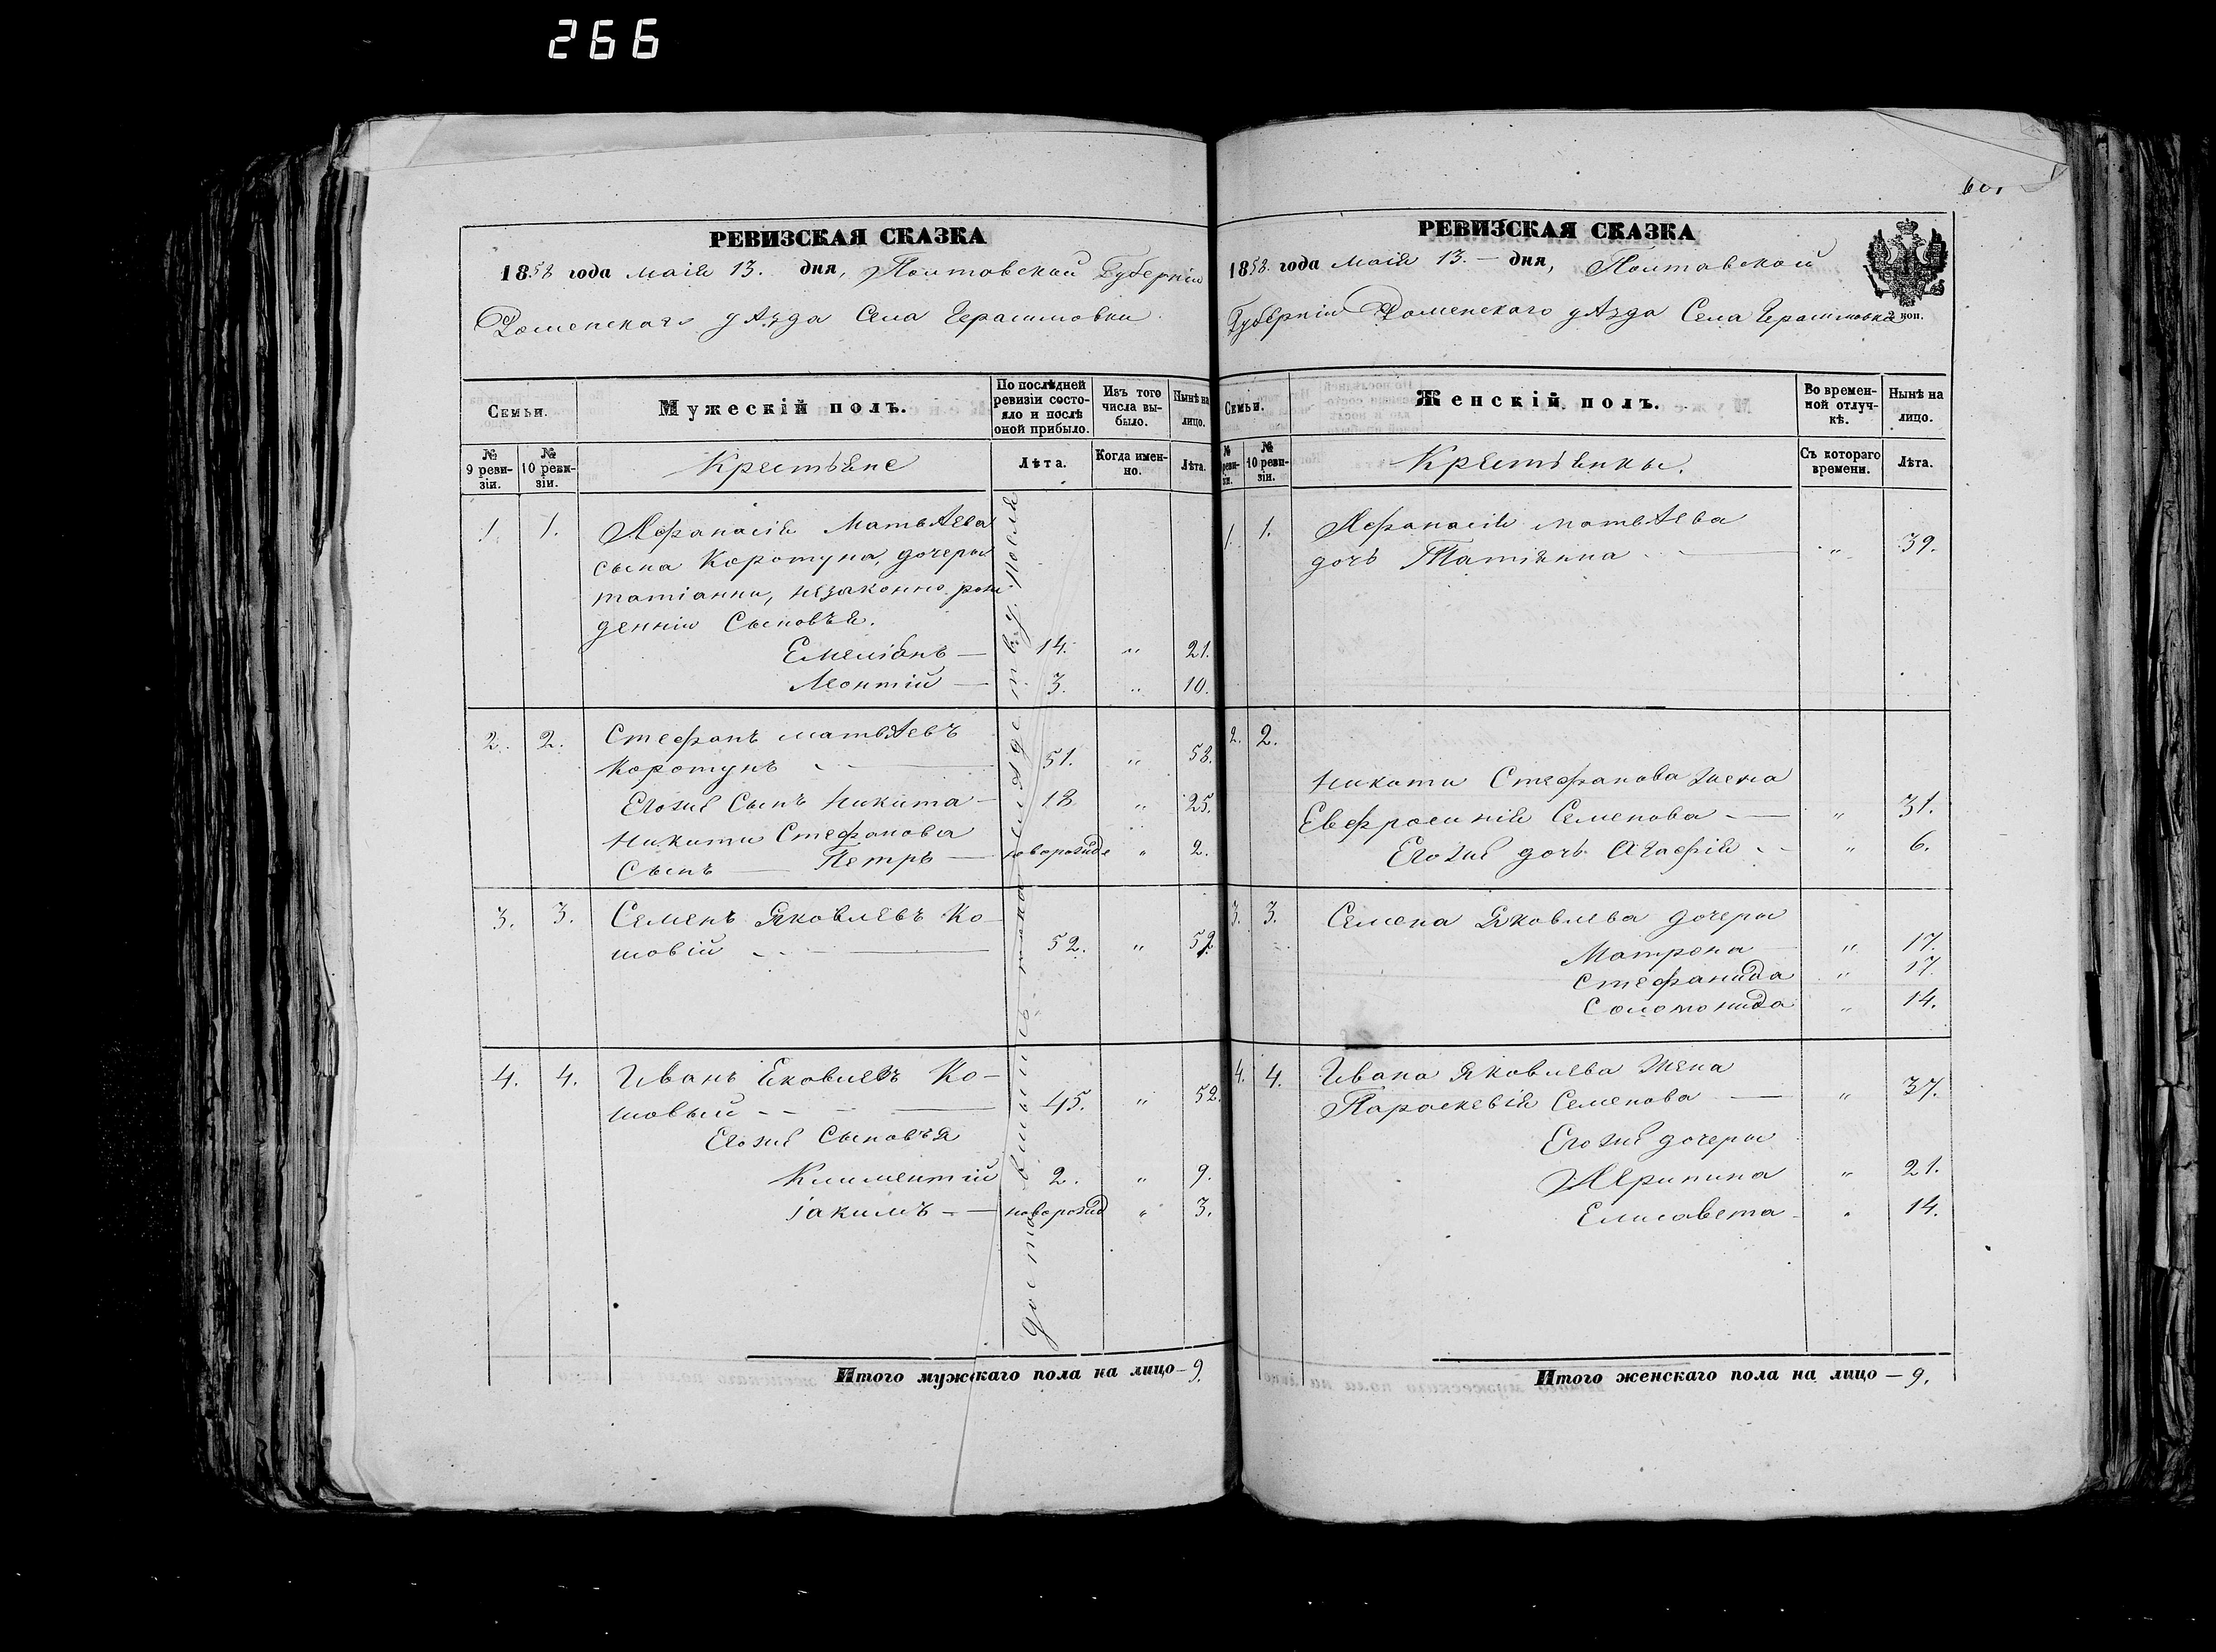 266
РЕВИЗСКАЯ СКАЗКА
1858 года маія 13. дня, Полтовской Губерніи
Роменскаго уѣзда Села Герасимовки
Семьи.
Мужескій полъ.
По послѣдней ревизіи состояло и послѣ оной прибыло.
Изъ того числа выбыло.
Нынѣ на лицо.
№ 9 ревизіи.
№ 10 ревизіи.
Крестьяне
Лѣта.
Когда именно.
Лѣта.
1. 1. Афанасія Матвѣева
сына Коротуна, дочеры
татіанни, незаконно рож
денніи Сыновъя.
Емеліянъ — 14. „ 21.
Леонтій — 3. „ 10.
2. 2. Стефанъ матвѣевъ
Коротунъ — 51. „ 58.
Егоже Сынъ Никита — 18 „ 25.
Никити Стефанова
Сынъ — Петръ — новорожде „ 2.
3. 3. Семенъ Яковлевъ Ко-
шовій — 52. „ 59
4. 4. Иванъ Яковлевъ Ко-
шовый — 45. „ 52.
Егоже Сыновъя
Климентій 2. „ 9.
Іакимъ — новорожд „ 3.
Итого мужскаго пола на лицо — 9.
РЕВИЗСКАЯ СКАЗКА
1858. года Маія 13. — дня, Полтавской
Губерніи Роменскаго уѣзда Села Герасимовки
коп.
Семьи.
Женскій полъ.
Во временной отлучкѣ.
Нынѣ на лицо.
№ 10 ревизіи.
Крестьянки.
Съ котораго времени.
Лѣта.
1. 1. Афанасія матвѣева
дочь Татіянна — „ 39.
2. 2.
Никити Стефанова жена
Евфросинія Семенова — „ 31.
Егоже дочь Агафія — „ 6.
3. 3. Семена Яковлева дочеры
Матрона — „ 17.
Стефанида „ 17.
Соломонида „ 14.
4. 4. Ивана Яковлева жена
Параскевія Семенова — „ 37.
Егоже дочеры
Агрипина „ 21.
Елисавета „ 14.
Итого женскаго пола на лицо — 9.